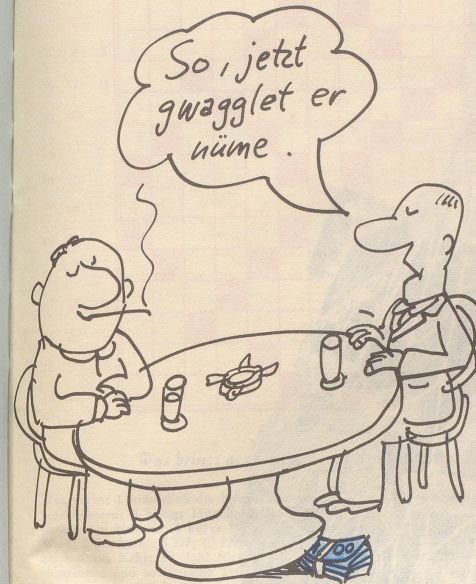 So, jetzt
gwagglet er
nüme.